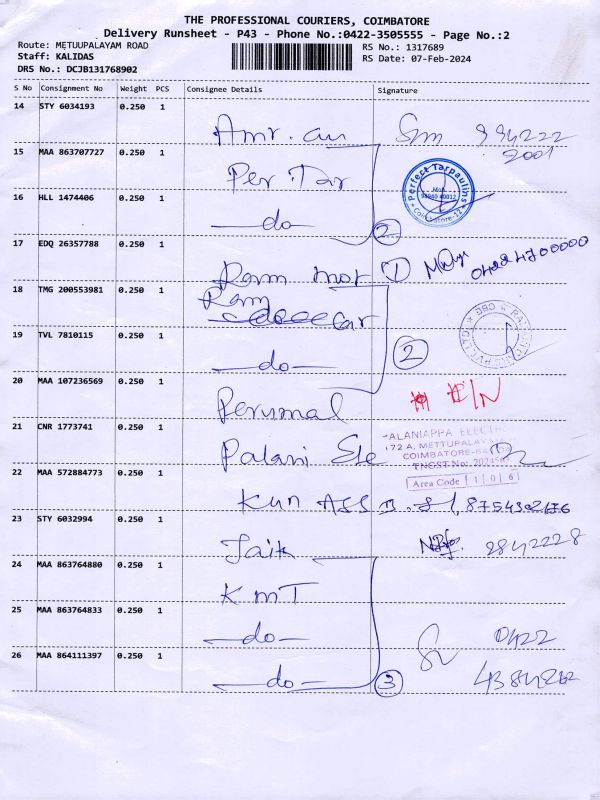 THE PROFESSIONAL COURIERS, COIMBATORE
Delivery Runsheet - P43 - Phone No.:0422-3505555 - Page No.:2
Route: METUUPALAYAM ROAD
Staff: KALIDAS
DRS No.: DCJB131768902
RS No.: 1317689
RS Date: 07-Feb-2024
S No Consignment No Weight PCS Consignee Details Signature
14 STY 6034193 0.250 1
15 MAA 863707727 0.250 1 Per Tar
Perfect Tarpaulins
Coimbatore-12
16 HLL 1474406 0.250 1 do
2
17 EDQ 26357788 0.250 1 Ram mot 1
18 TMG 200553981 0.250 1 Ram
19 TVL 7810115 0.250 1 do
2
20 MAA 107236569 0.250 1 Perumal
21 CNR 1773741 0.250 1 Palani Ele
ALANIAPPA ELECT
172 A, METTUPALAYA
COIMBATORE
TNGST No:
Area Code 1 0 6
22 MAA 572884773 0.250 1
23 STY 6032994 0.250 1 Jaik
24 MAA 863764880 0.250 1 KMT
25 MAA 863764833 0.250 1 do 0422
26 MAA 864111397 0.250 1 do
3